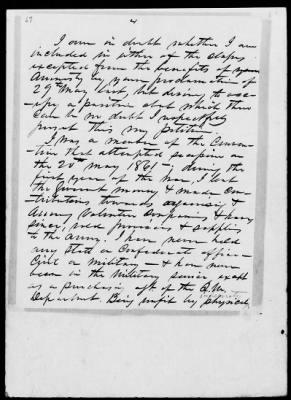 I am in doubt whether I am
included in either of the classes
excepted from the benefits of your
Amnesty by your proclamation of
29th May last, but desiring to occu-
-py a position about which there
can be no doubt I respectfully
present this my petition.
I was a member of the Conven-
tion that attempted secession on
the 20th May 1861, & during the
first year of the war, I lent
the Government money & made con-
tributions towards organising &
Volunteer Companies & have
since, sold provisions & supplies
to the Army. I have never held
any State or Confederate office -
Civil or military - & have never
been in the military service except
as a purchasing agt. of the Q.M.
Department. Being unfit by physical